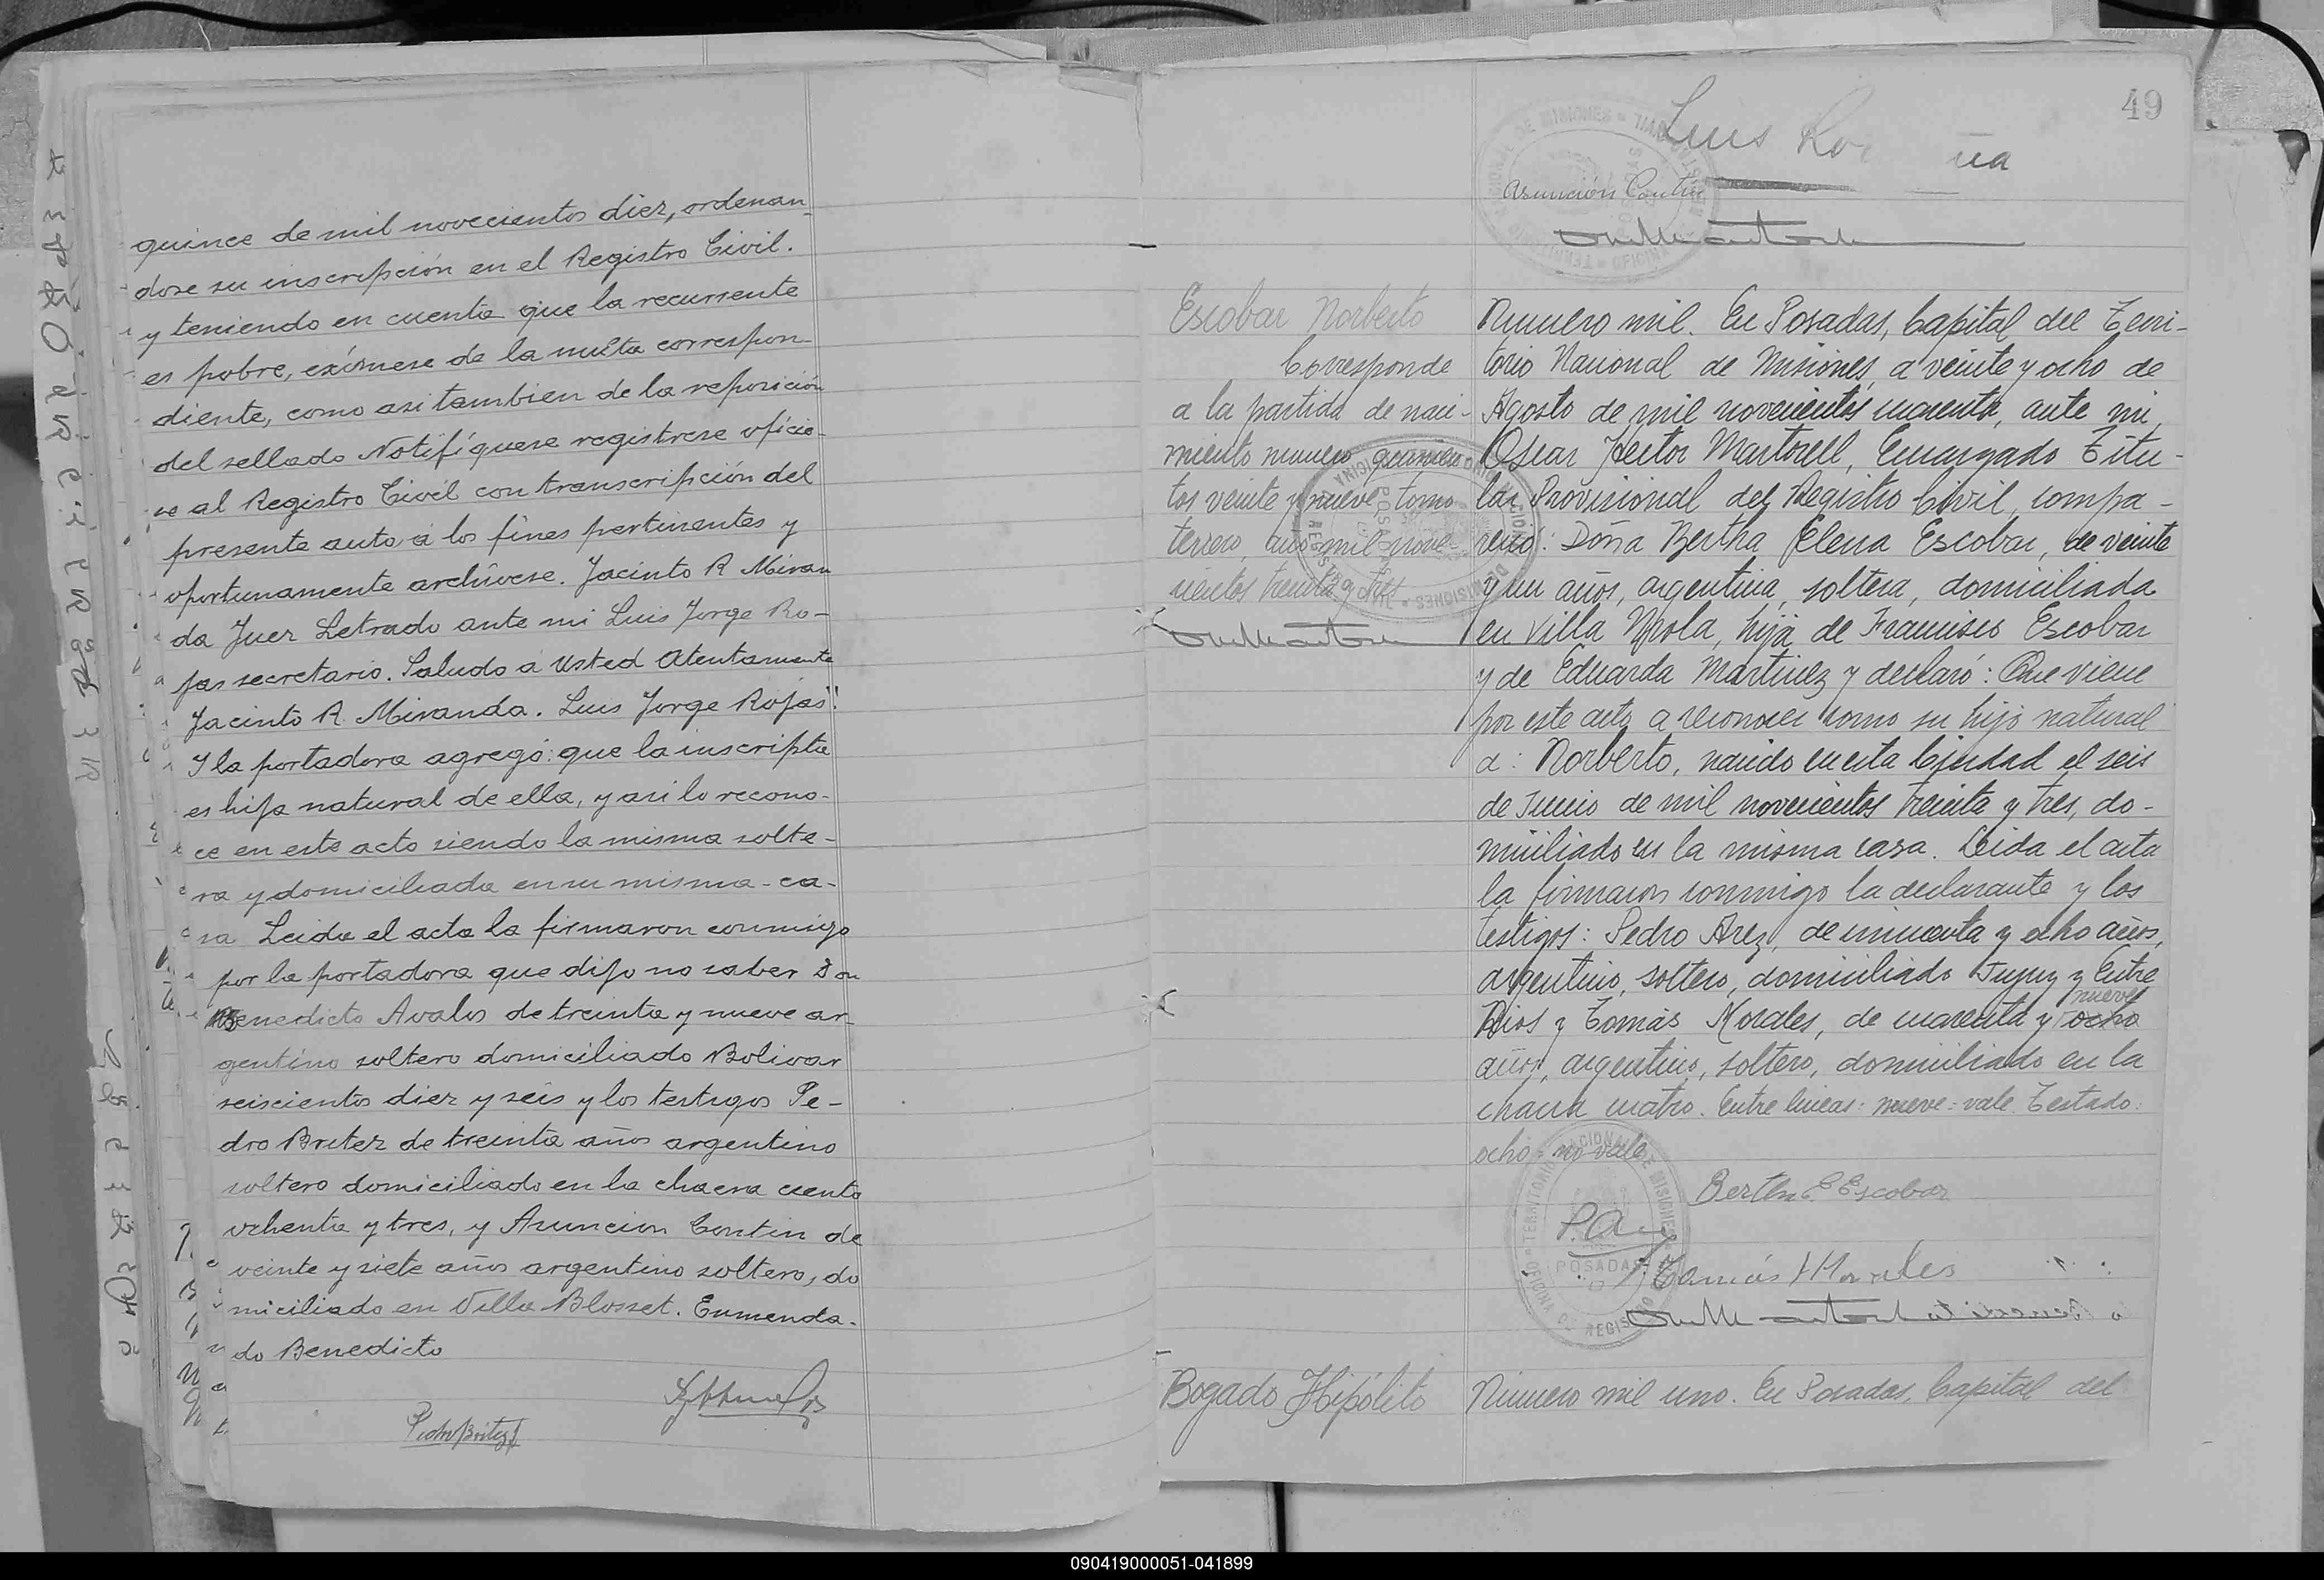 quince de mil novecientos diez, ordenan-
dose su inscripción en el Registro Civil.
y teniendo en cuenta que la recurrente
es pobre, exímese de la multa correspon-
diente, como asi tambien de la reposición
del sellado Notifíquese registrese oficie-
se al Registro Civil con transcripción del
presente auto a los fines pertinentes y
oportunamente archívese. Jacinto R Miran
da Juez Letrado ante mi Luis Jorge Ro-
jas secretario. Saludo a Usted Atentamente
Jacinto R. Miranda. Luis Jorge Rojas".
Y la portadora agregó: que la inscripta
es hija natural de ella, y asi lo recono-
ce en este acto siendo la misma solte-
ra y domiciliada en su misma - ca-
sa Leida el acta la firmaron conmigo
por la portadora que dijo no saber Don
Benedicto Avalos de treinta y nueve ar-
gentino soltero domiciliado Bolivar
seiscientos diez y seis y los testigos Pe-
dro Britez de treinta años argentino
soltero domiciliado en la chacra ciento
ochenta y tres, y Asuncion Contin de
veinte y siete años argentino soltero, do
miciliado en Villa Blosset. Enmenda-
do Benedicto
Pedro Britez
49
Luis
Asunción
Escobar Norberto
Corresponde
a la partida de naci-
miento numero
tos veinte y nueve tomo
tercero, año mil nove-
cientos treinta y tres
Numero mil. En Posadas, Capital del Terri-
torio Nacional de Misiones, a veinte y ocho de
Agosto de mil novecientos cuarenta, ante mi,
Oscar Hector Martorell, Encargado Titu-
lar Provisional del Registro Civil, compa-
reció: Doña Bertha Elena Escobar, de veinte
y un años, argentina, soltera, domiciliada
en Villa Urola, hija de Francisco Escobar
y de Eduarda Martinez y declaró: Que viene
por este acto a reconocer como su hijo natural
a: Norberto, nacido en esta Ciudad el seis
de Junio de mil novecientos treinta y tres, do-
miciliado en la misma casa. Leida el acta
la firmaron conmigo la declarante y los
testigos: Pedro Arez, de cincuenta y ocho años,
argentino, soltero, domiciliado Jujuy y Entre
nueve
Rios y Tomás Morales, de cuarenta y ocho
años, argentino, soltero, domiciliado en la
chacra cuatro. Entre lineas: nueve: vale. Testado:
ocho: no vale
Bertha E Escobar
POSADAS
Tomás Morales
Bogado Hipólito
Número mil uno. En Posadas, Capital del
090419000051-041899